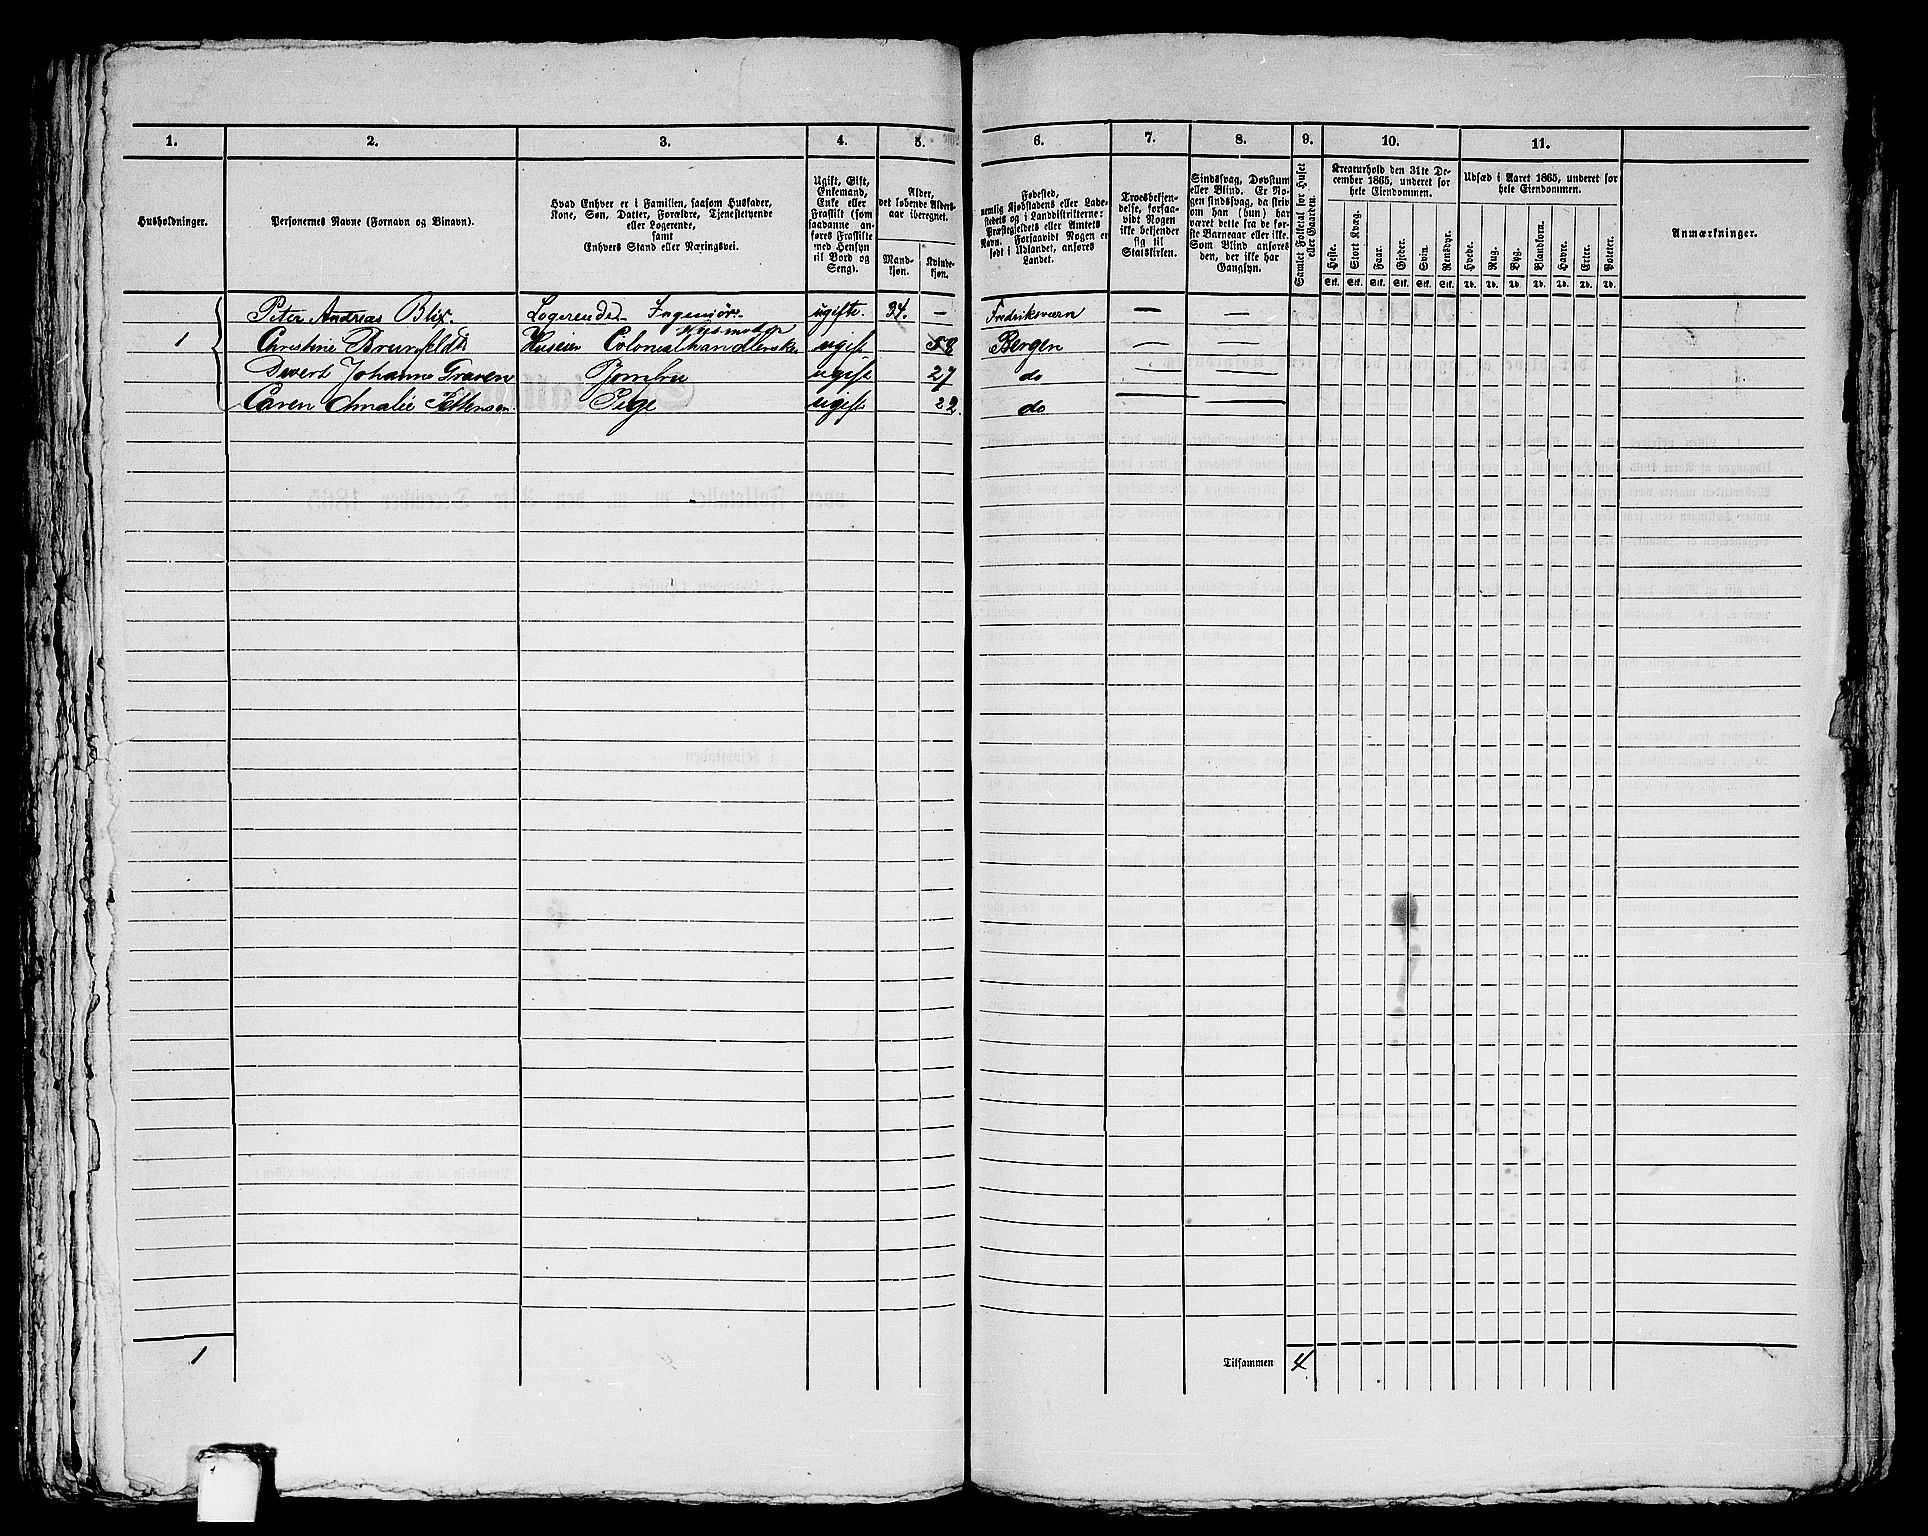 1. 2. 3. 4. 5. 6. 7. 8. 9. 10. 11.
Husholdninger.
Personernes Navne (Fornavn og Binavn).
Hvad Enhver er i Familien, saasom Husfader,
Kone, Søn, Datter, Forældre, Tjenestetyende
eller Logerende,
samt
Enhvers Stand eller Næringsvei.
Ugift, Gift,
Enkemand,
Enke eller
Fraskilt (som
saadanne an-
føres Fraskilte
med Hensyn
til Bord og
Seng).
Alder,
det løbende Alders-
aar iberegnet.
Mand-
kjøn.
Kvinde-
kjøn.
Fødested,
nemlig Kjøbstadens eller Lade-
stedets og i Landdistrikterne:
Præstegjeldets eller Amtets
Navn. Forsaavidt Nogen er
født i Udlandet, anføres
Landet.
Troesbekjen-
delse, forsaa-
vidt Nogen
ikke bekjender
sig til
Statskirken.
Sindssvag, Døvstum
eller Blind. Er No-
gen sindssvag, da skriv
om han (hun) har
været dette fra de før-
ste Barneaar eller ikke.
Som Blind anføres
den, der ikke har
Gangsyn.
Samlet Folketal for Huset
eller Gaarden.
Kreaturhold den 31te De-
cember 1865, underet for
hele Eiendommen.
Heste. Stort Kvæg. Faar. Gjeder. Svin. Rensdyr.
Stk. Stk. Stk. Stk. Stk. Stk.
Udsæd i Aaret 1865, underet for
hele Eiendommen.
Hvede. Rug. Byg. Blandkorn. Havre. Erter. Poteter.
Td. Td. Td. Td. Td. Td. Td.
Anmærkninger.
Peter Andreas Blix. Logerendes Ingeniör. ugifte. 34. — Fredriksværn — —
1 Christine Brunfeldt Huseier Colonialhandlerske Huusmoder ugift 58 Bergen — —
Divert Johanne Graven Jomfru ugift 27 do — —
Caren Amalie Pettersen. Pige ugift 22. do — —
1 Tilsammen 4